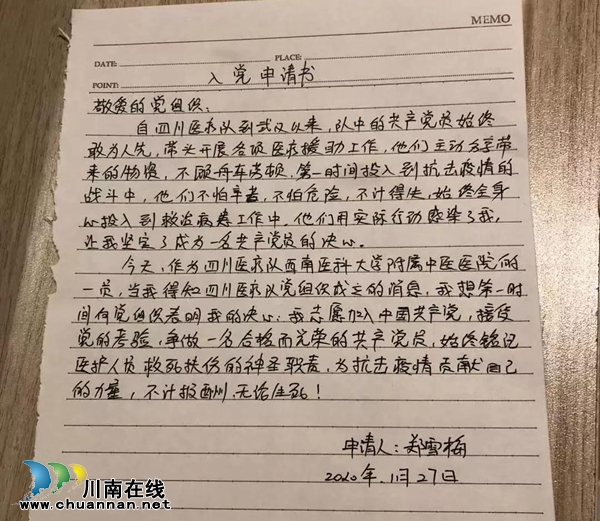 MEMO
DATE:
PLACE:
POINT:
入党申请书
敬爱的党组织、
自四川医疗队到武汉以来,队中的共产党员始终
敢为人先,带头开展各项医疗援助工作,他们主动分享带
来的物资,不顾舟车劳顿,第一时间投入到抗击疫情的
战斗中,他们不怕辛苦,不怕危险,不计得失,始终全身
心投入到救治病患工作中。他们用实际行动感染了我,
让我坚定了成为一名共产党员的决心。
今天,作为四川医疗队西南医科大学附属中医医院的
一员,当我得知四川医疗队党组织成立的消息,我想第一时
间向党组织表明我的决心:我志愿加入中国共产党,接受
党的考验,争做一名合格而光荣的共产党员,始终铭记
医护人员救死扶伤的神圣职责,为抗击疫情贡献自己
的力量,不计报酬,无论生死!
申请人:郑雪梅
2020年.1月27日
川南在线
www.chuannan.net